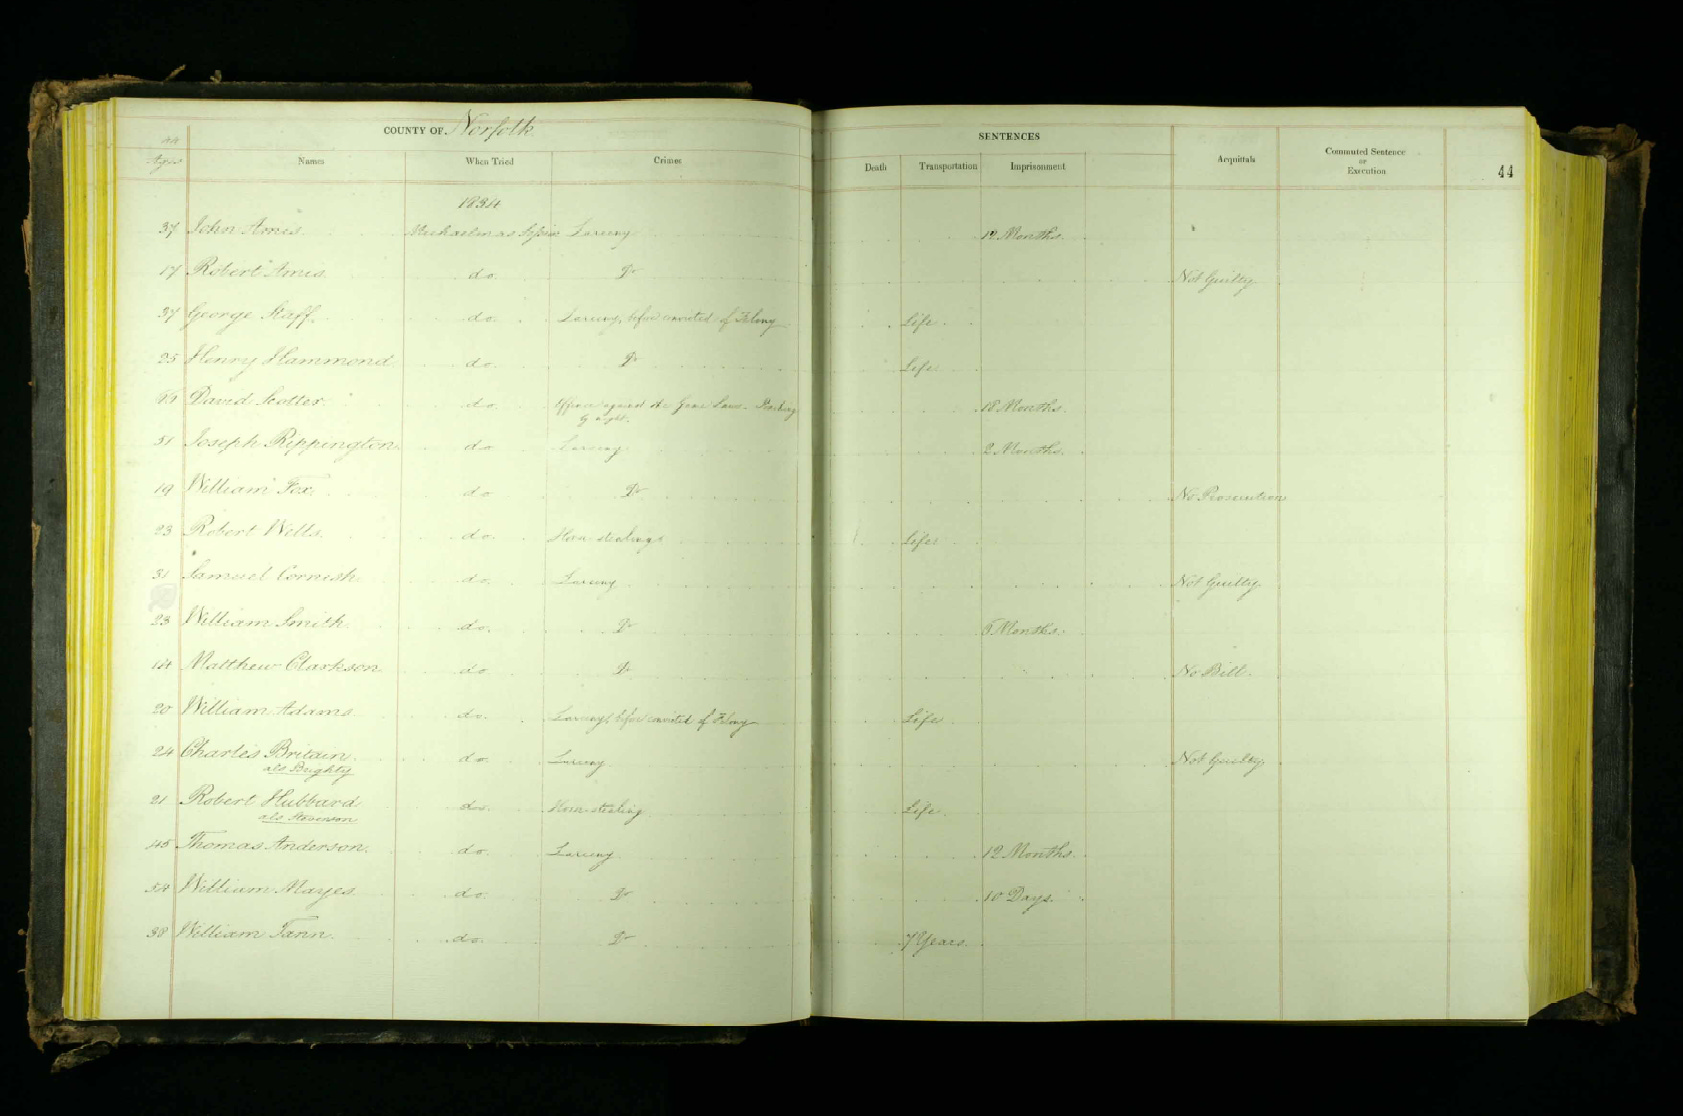 COUNTY OF Norfolk
SENTENCES
44
Ages Names When Tried Crimes Death Transportation Imprisonment Acquittals Commuted Sentence or Execution 44
1834
37 John Amis Michaelmas Larceny 12 Months.
17 Robert Amis do Do Not Guilty
37 George Staff do. Larceny, before convicted of Felony Life.
25 Henry Hammond do. Do Life
David Scotter do. Offence against the Game Laws - Poaching 18 Months.
by night.
51 Joseph Rippington do Larceny 2 Months.
19 William Fox. do Do No Prosecution
23 Robert Wells. do. Horse stealing Life
31 Samuel Cornish do. Larceny Not Guilty
23 William Smith do. Do 6 Months.
14 Matthew Clarkson do Do No Bill.
20 William Adams do. Larceny, before convicted of Felony Life
24 Charles Britain do. Larceny Not Guilty
als Brighty
21 Robert Hubbard do. Horse stealing Life
als Stevenson
45 Thomas Anderson. do. Larceny 12 Months.
William Mayes do. Do 10 Days.
38 William Tann. do. Do 7 Years.